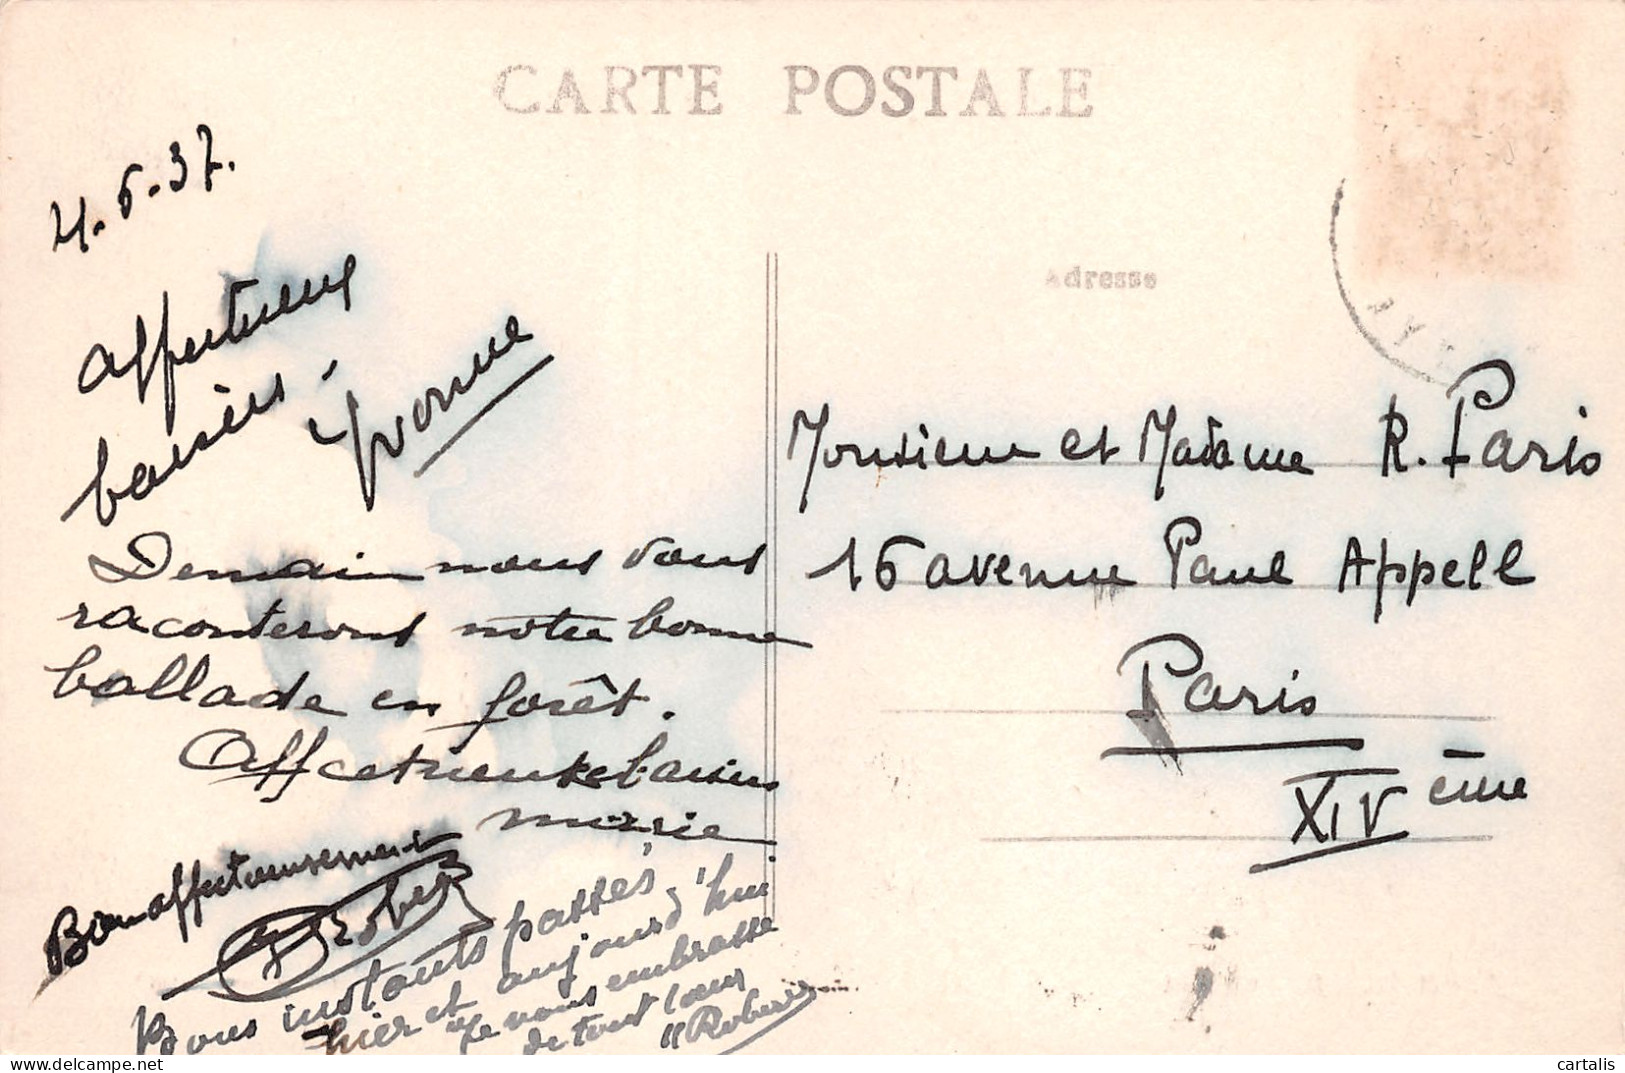 CARTE POSTALE
4.6.37.
Affectueux
baisers
Yvonne
Demain nous vous
raconterons notre bonne
ballade en forêt.
Affectueux baisers
Bien affectueusement
Robert
Bons instants passés
hier et aujourd'hui
Je vous embrasse
de tout cœur
Adresse
Monsieur et Madame R. Paris
16 avenue Paul Appell
Paris
XIV ème
cartalis